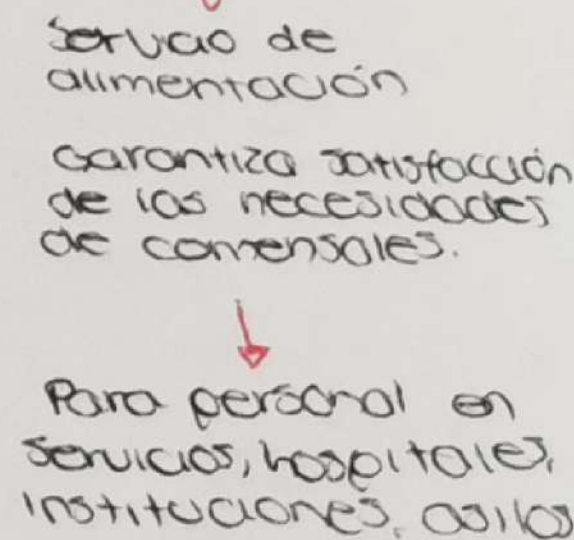 Servicio de
alimentación
Garantiza satisfacción
de las necesidades
de comensales.
Para personal en
servicios, hospitales,
instituciones, asilos